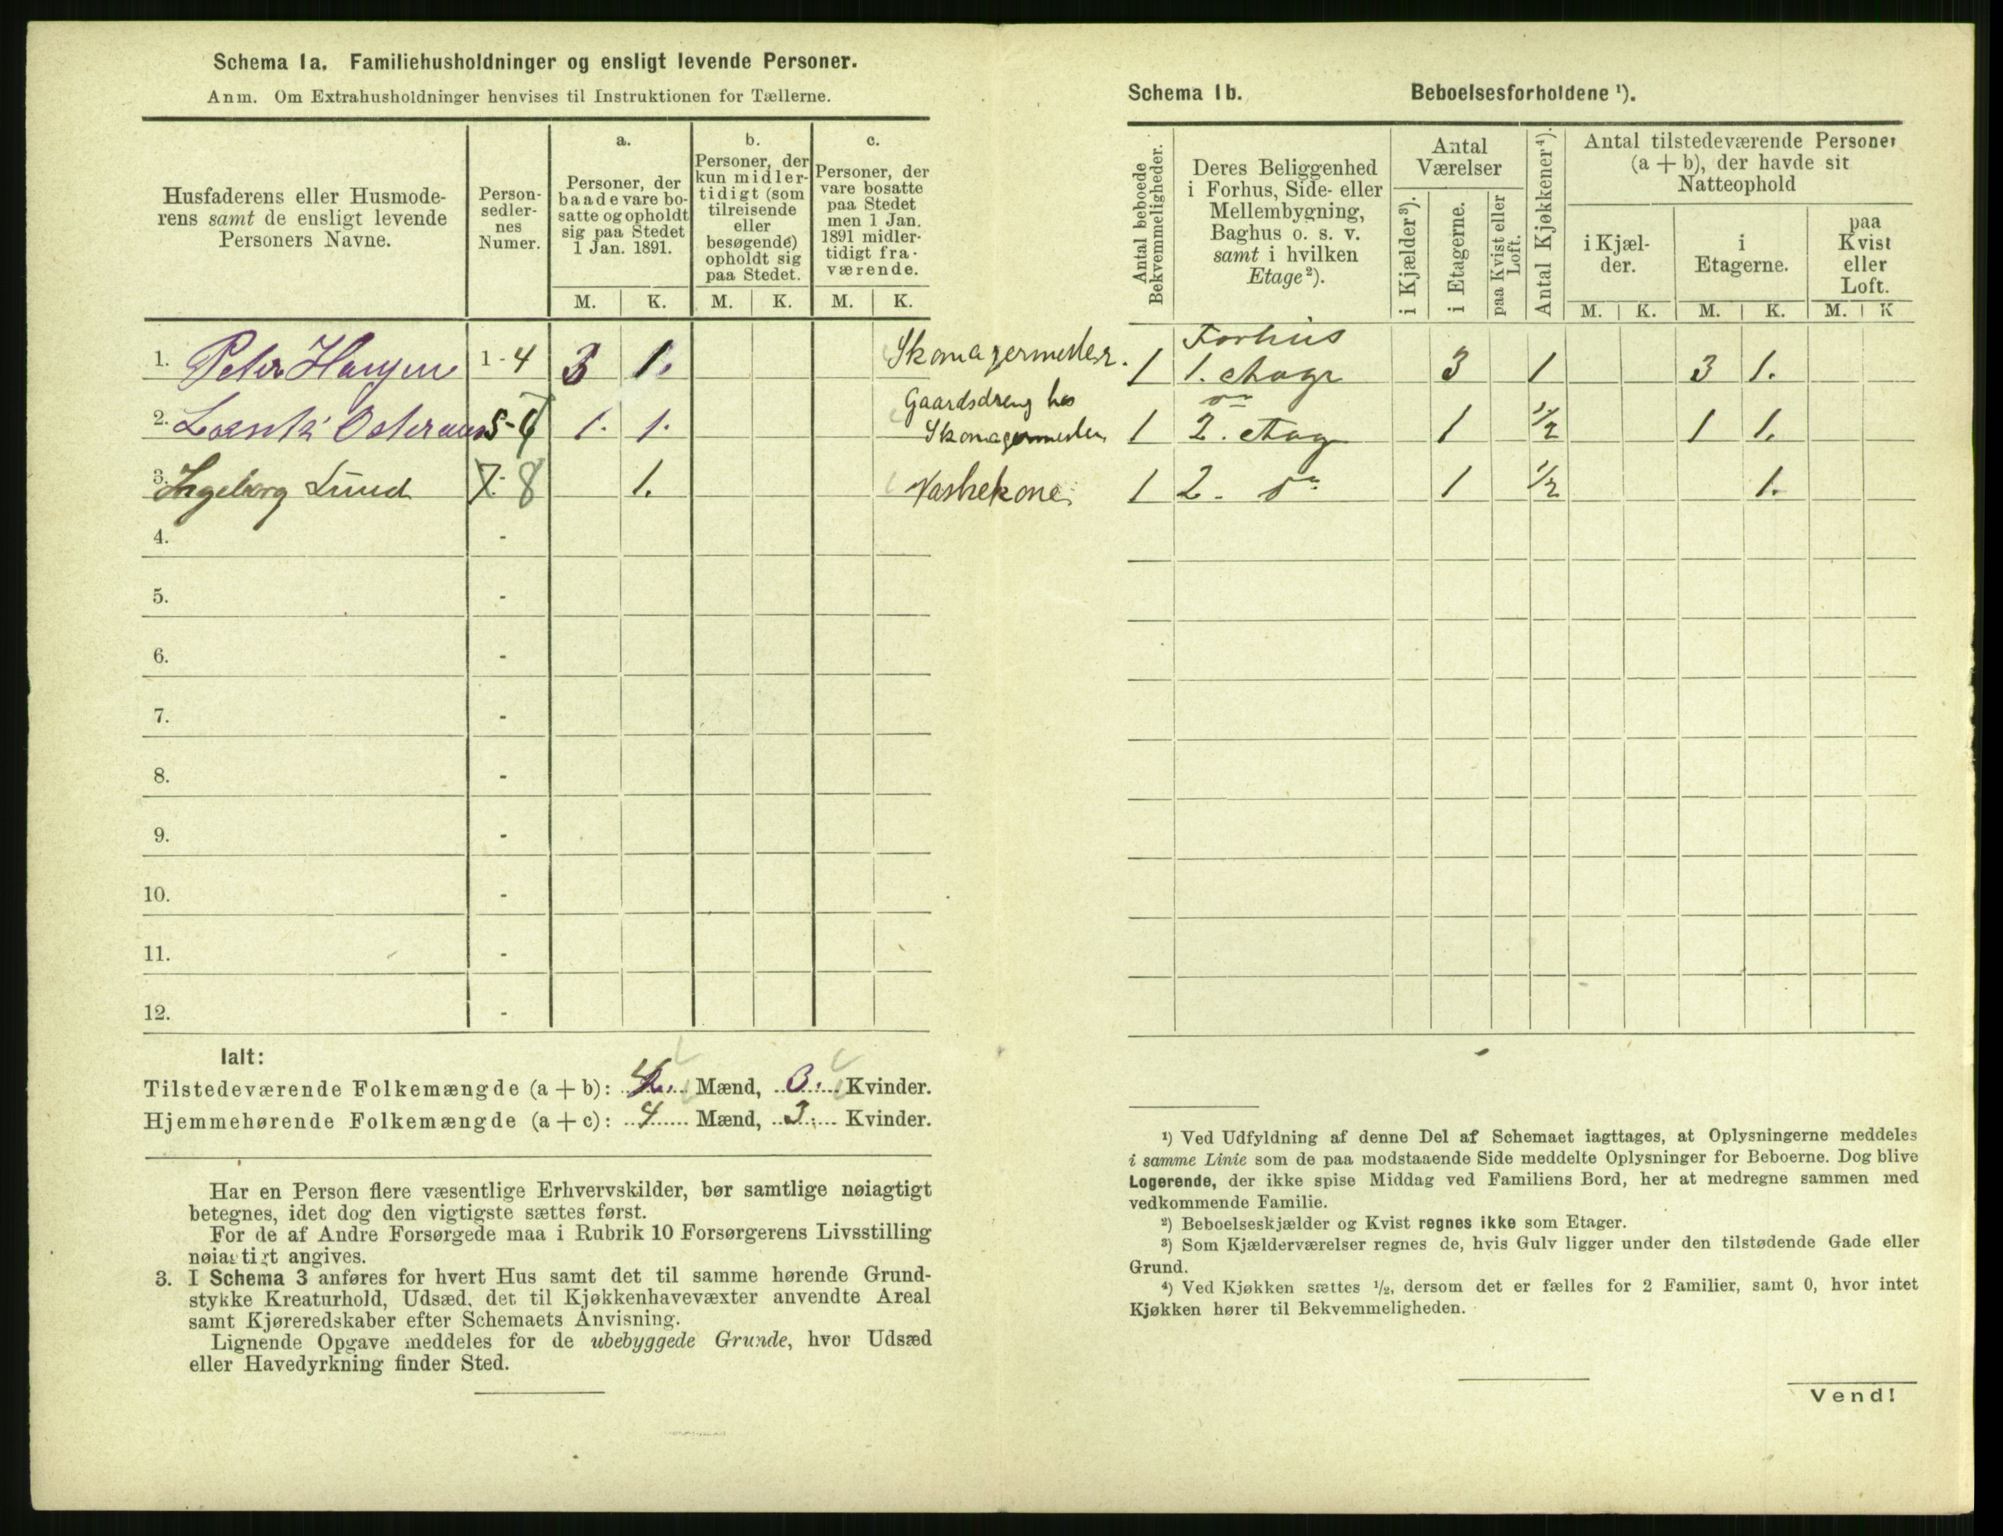 Schema 1a. Familiehusholdninger og ensligt levende Personer.
Anm. Om Extrahusholdninger henvises til Instruktionen for Tællerne.
Husfaderens eller Husmode-
rens samt de ensligt levende
Personers Navne.
Person-
sedler-
nes
Numer.
a.
Personer, der
baade vare bo-
satte og opholdt
sig paa Stedet
1 Jan. 1891.
b.
Personer, der
kun midler-
tidigt (som
tilreisende
eller
besøgende)
opholdt sig
paa Stedet.
c.
Personer, der
vare bosatte
paa Stedet
men 1 Jan.
1891 midler-
tidigt fra-
værende.
M. K. M. K. M. K.
1. Peter Hansen 1-4 3 1. Skomagermester.
2. 5-6 1. 1. Gaardsdreng hos
Skomagermester
3. Ingeborg Lund 7-8 1. Vaskekone
4. -
5. -
6. -
7. -
8. -
9. -
10. -
11. -
12. -
Ialt:
Tilstedeværende Folkemængde (a + b): 4 Mænd, 3. Kvinder.
Hjemmehørende Folkemængde (a + c): 4 Mænd, 3. Kvinder.
Har en Person flere væsentlige Erhvervskilder, bør samtlige nøiagtigt
betegnes, idet dog den vigtigste sættes først.
For de af Andre Forsørgede maa i Rubrik 10 Forsørgerens Livsstilling
nøiagtigt angives.
3. I Schema 3 anføres for hvert Hus samt det til samme hørende Grund-
stykke Kreaturhold, Udsæd, det til Kjøkkenhavevæxter anvendte Areal
samt Kjøreredskaber efter Schemaets Anvisning.
Lignende Opgave meddeles for de ubebyggede Grunde, hvor Udsæd
eller Havedyrkning finder Sted.
Schema 1b. Beboelsesforholdene ¹).
Antal beboede
Bekvemmeligheder.
Deres Beliggenhed
i Forhus, Side- eller
Mellembygning,
Baghus o. s. v.
samt i hvilken
Etage²).
Antal
Værelser
i Kjælder³).
i Etagerne.
paa Kvist eller
Loft.
Antal Kjøkkener⁴).
Antal tilstedeværende Personer
(a + b), der havde sit
Natteophold
i Kjæl-
der.
i
Etagerne.
paa
Kvist
eller
Loft.
M. K. M. K. M. K
Forhus
1 1. Etage 3 1 3 1.
do
1 2. Etag 1 1/2 1 1.
1 2. do 1 1/2 1.
¹) Ved Udfyldning af denne Del af Schemaet iagttages, at Oplysningerne meddeles
i samme Linie som de paa modstaaende Side meddelte Oplysninger for Beboerne. Dog blive
Logerende, der ikke spise Middag ved Familiens Bord, her at medregne sammen med
vedkommende Familie.
²) Beboelseskjælder og Kvist regnes ikke som Etager.
³) Som Kjælderværelser regnes de, hvis Gulv ligger under den tilstødende Gade eller
Grund.
⁴) Ved Kjøkken sættes ¹/₂, dersom det er fælles for 2 Familier, samt 0, hvor intet
Kjøkken hører til Bekvemmeligheden.
Vend!